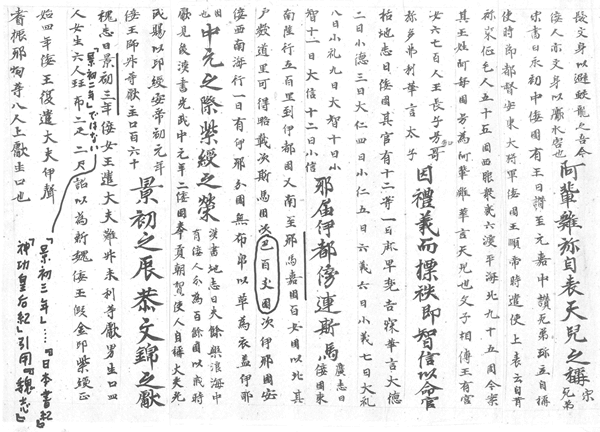 長文身以避蛟龍之吾今
倭人亦文身以厭水害也
阿輩雞弥自表天兒之稱
宋
兄弟
宋書曰永初中倭國有王曰讃至元嘉中讃死弟珎立自稱
使時節都督安東大将軍倭國王順帝時遣使上表云自昔
祢東征毛人五十五國西服衆夷六渡平海北九十五國今案
其王姓阿每國号為阿輩雞華言天兒也父子相傳王有宮
女六七百人王長子号哥
弥多弗利華言太子
因禮義而標秩即智信以命官
括地志曰倭國其官有十二等一曰麻卑兜吉寐華言大德
二曰小德三曰大仁四曰小仁五曰大義六曰小義七曰大礼
八曰小礼九曰大智十曰小
智十一曰大信十二曰小信
邪届伊都傍連斯馬
廣志曰
倭國東
南陸行五百里到伊都國又南至邪馬嘉國百女國以北其
戸數道里可得略載次斯馬國次巴百支國次伊邪國安
倭西南海行一日有伊邪分國無布帛以革為衣盖伊耶
國
也
中元之際紫綬之榮
漢書地志曰夫餘樂浪海中
有倭人分為百餘國以歳時
獻見後漢書光武中元年二倭國奉貢朝賀使人自稱大夫光
武賜以印綬安帝初元年
倭王師外等獻生口百六十
景初之辰恭文錦之獻
魏志曰景初三年倭女王遣大夫難升未利等獻男生口四
人女生六人班布二疋二尺詔以為新魏倭王假金印紫綬正
始四年倭王復遣大夫伊聲
耆振邪狗等八人上獻生口也
「景初二年」ではない
「景初三年」…「日本書紀」
「神功皇后紀」引用「魏志」